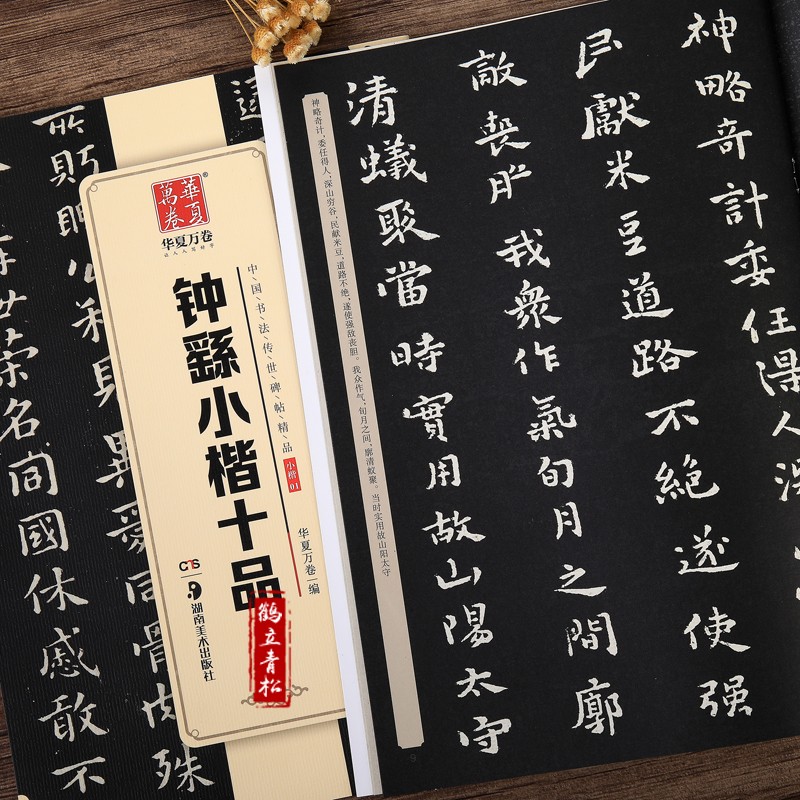 這
所盻睨公私見異愛同骨肉殊
世榮名同國休慼敢不
萬卷華夏
®
华夏万卷
让人人写好字
中国书法传世碑帖精品
小楷01
钟繇小楷十品
华夏万卷 编
CTS
湖南美术出版社
鹤立青松
神略奇計委任得人深
民獻米豆道路不絕遂使强
敵喪膽我衆作氣旬月之間廓
清蟻聚當時實用故山陽太守
神略奇计，委任得人，深山穷谷，民献米豆，道路不绝，遂使强敌丧胆。我众作气，旬月之间，廓清蚁聚。当时实用故山阳太守
9